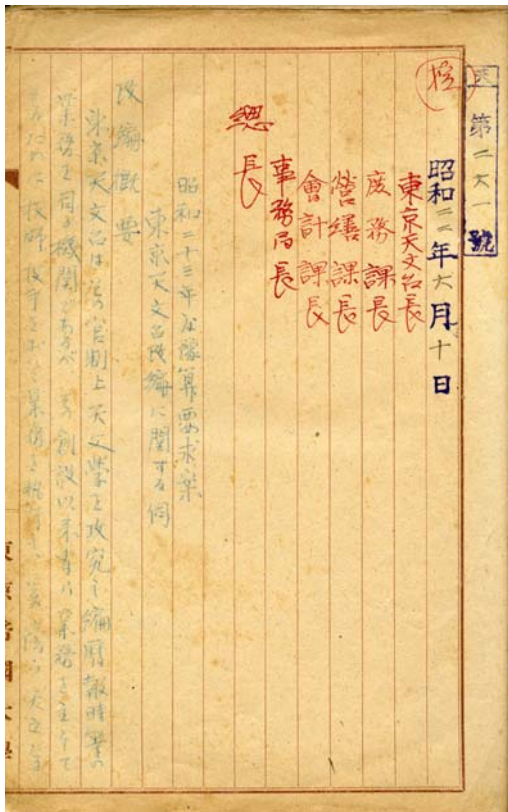 天第二六一號
控
昭和二二年六月十日
東京天文台長
庶務課長
營繕課長
會計課長
事務局長
總長
昭和二十三年度豫算要求案
東京天文台改編に関する伺
改編概要
東京天文台は官制上天文學を攻究し編曆報時等の
業務を司る機関であるが創設以来専ら業務を主として
東京帝國大學